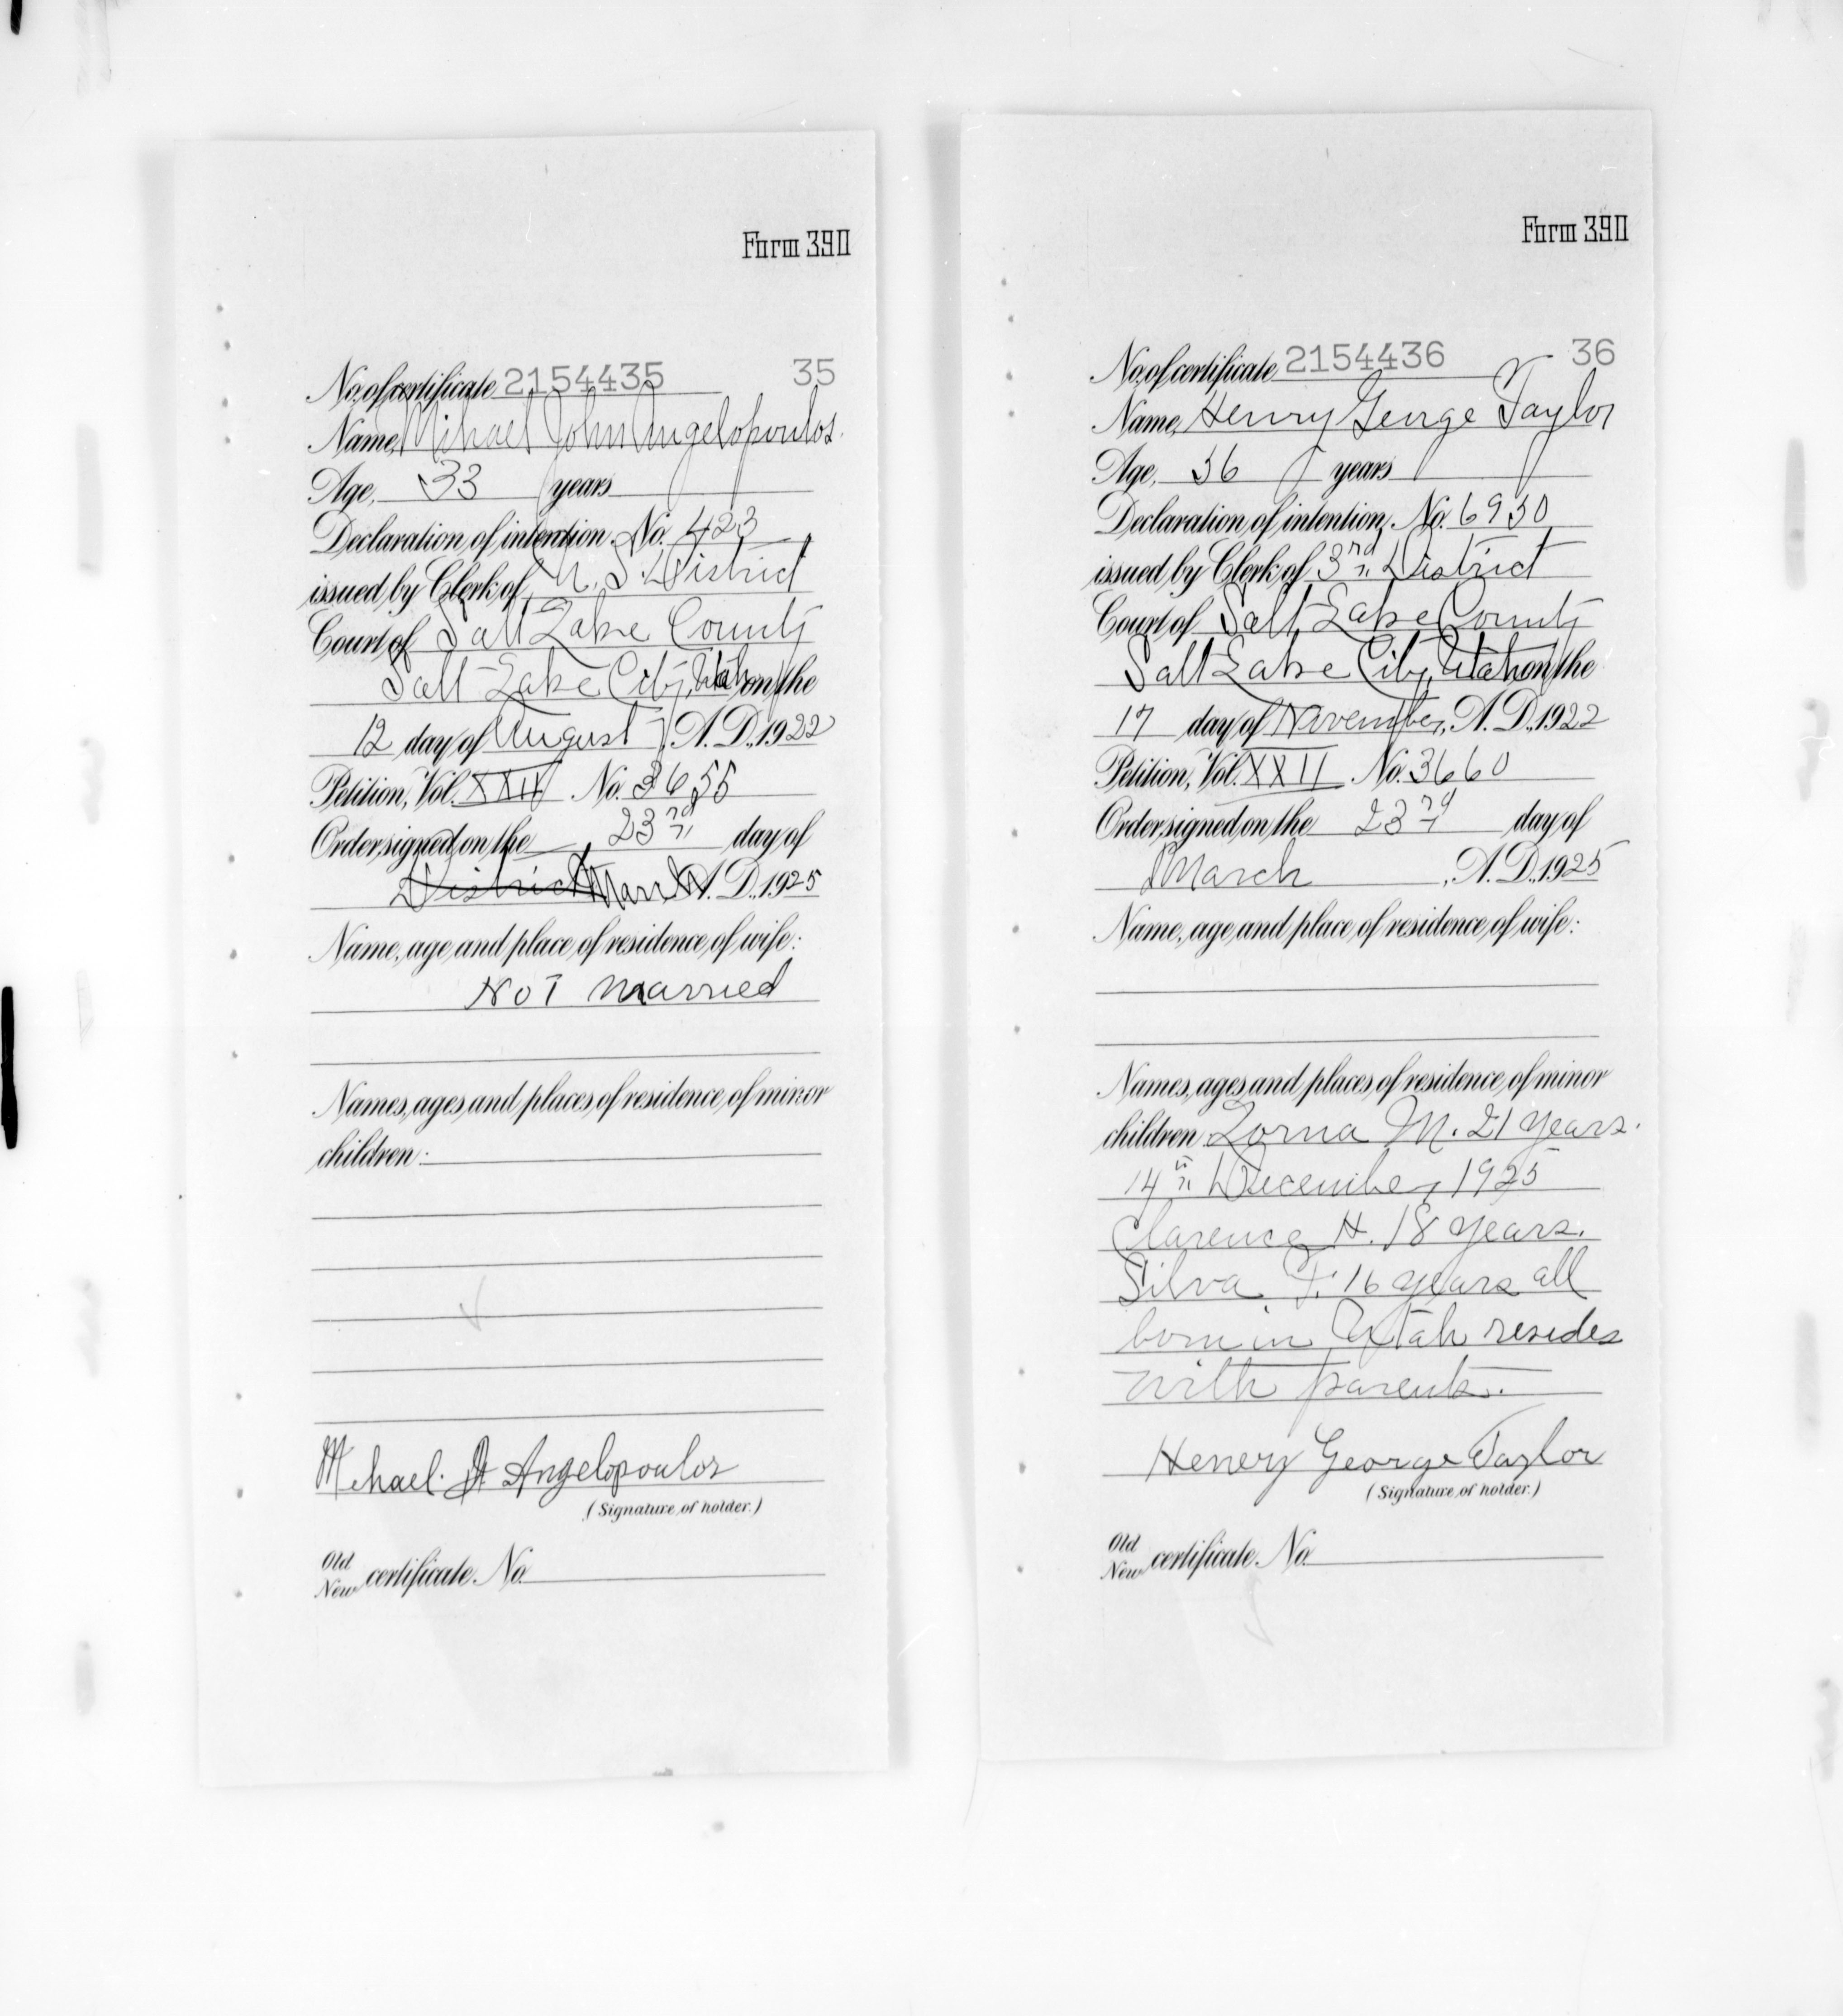 Form 390
No. of certificate 2154435 35
Name, Mihael John Angelopoulos.
Age, 33 years
Declaration of intention No. 423
issued by Clerk of U. S. District
Court of Salt Lake County
Salt Lake City, Utah on the
12 day of August, A. D., 1922
Petition, Vol. XXII No. 3655
Order signed on the 23rd day of
District March A. D., 1925
Name, age and place of residence of wife:
Not married
Names, ages and places of residence of minor
children:
Mehael. Angelopoulos
(Signature of holder.)
Old
New certificate No.
Form 390
No. of certificate 2154436 36
Name, Henry George Taylor
Age, 56 years
Declaration of intention, No. 6930
issued by Clerk of 3rd District
Court of Salt Lake County
Salt Lake City, Utah on the
17 day of November, A. D., 1922
Petition, Vol. XXII No. 3660
Order signed on the 23rd day of
March, A. D., 1925
Name, age and place of residence of wife:
Names, ages and places of residence of minor
children Lorna M. 21 years.
14th December, 1925
Clarence H. 18 years.
Silva F. 16 years all
born in Utah resides
with parents.
Henery George Taylor
(Signature of holder.)
Old
New certificate No.